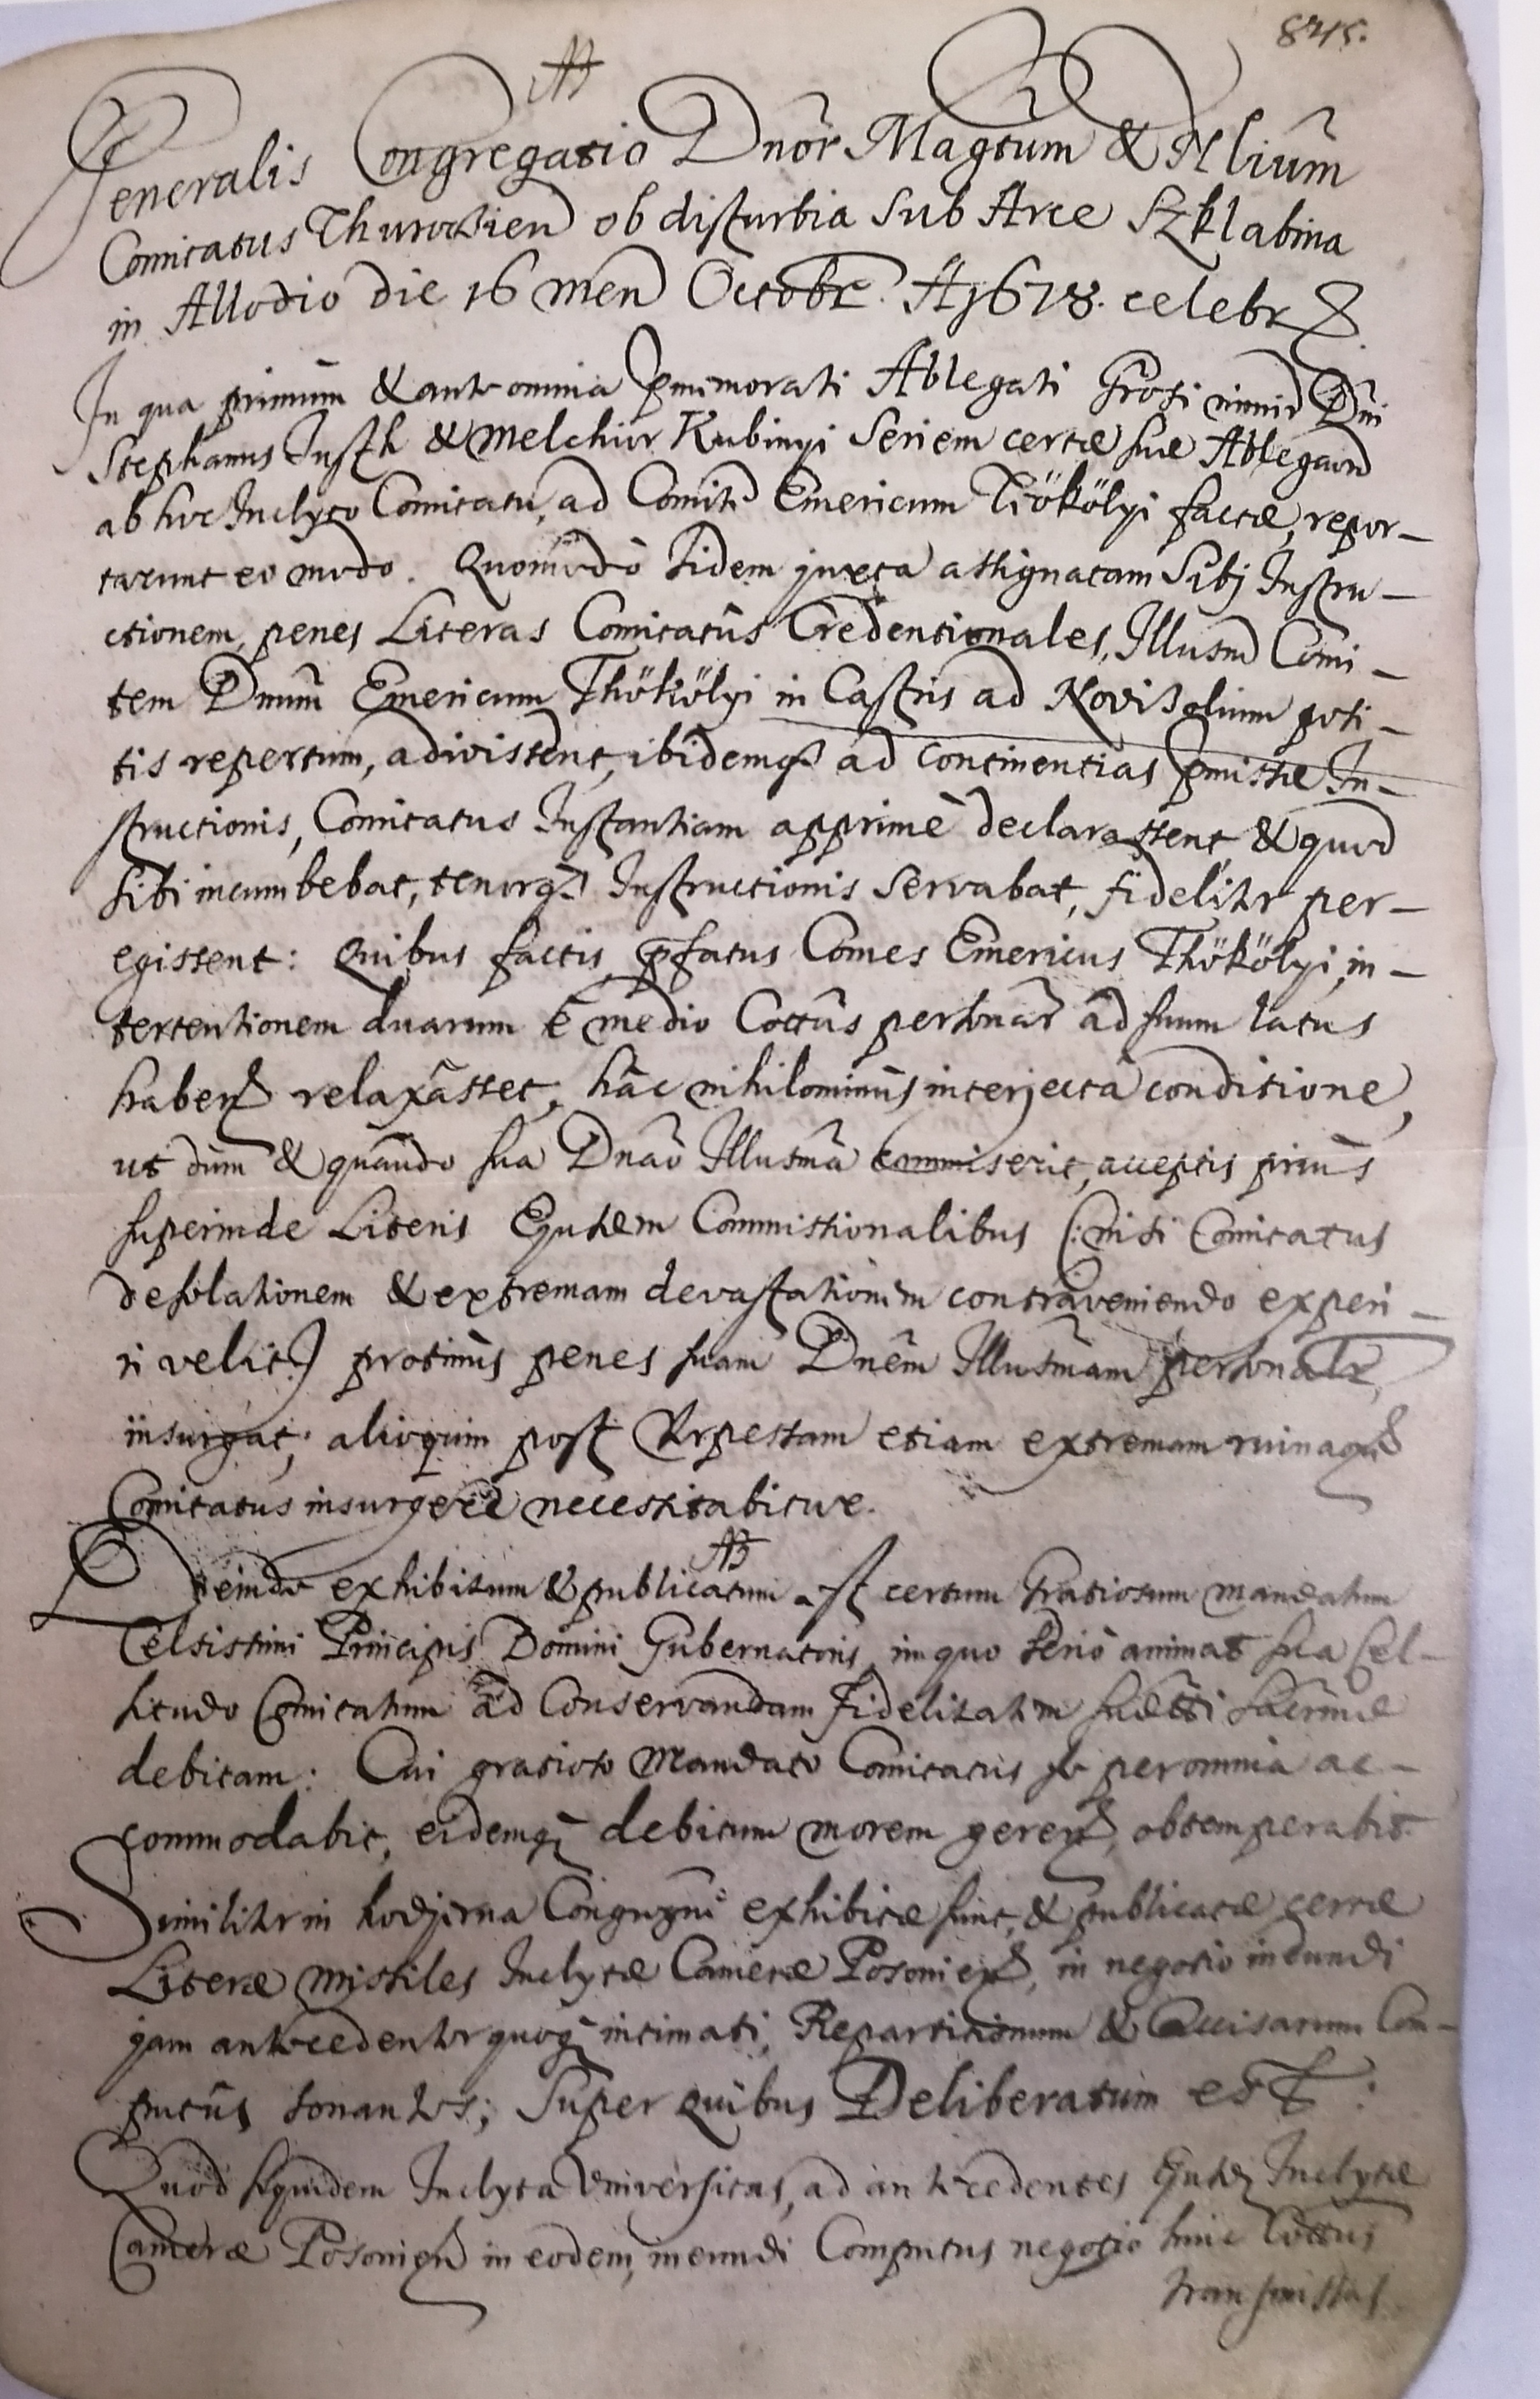 845.
AB
Generalis Congregatio Dnōr Magtum & Nlium
Comitatus Thuroczien ob disturbia Sub Arce Szklabina
in Allodio die 16 men Octobr. A 1678. celebr
In qua primum & ante omnia pmemorati Ablegati Grosi nimir Dni
Stephanus Justh & Melchior Kubinyi Seriem certæ suæ Ablegaōn
ab hoc Inclyto Comitatu, ad Comitē Emericum Tiökölyi factæ, repor-
tarunt eo modo. Quomodò Iidem juxta assignatam Sibj Instru-
ctionem, penes Literas Comitatûs Credentionales, Illusm Comi-
tem Dnum Emericum Thökölyi in Castris ad Novizolium posi-
tis repertum, adivissent, ibidemq ad continentias pmissæ In-
structionis, Comitatus Instantiam apprimè declarassent & quod
sibi incumbebat, tenorq Instructionis Servabat, fidelitr per-
egissent: Quibus factis, pfatus Comes Emericus Thökölyi, in-
tertentionem duarum è medio Cottûs personar ad suum latus
haben relaxâsset, hâc nihilominus interjectâ conditione,
ut dum & quando sua Dnāo Illusmā commiserit, acceptis prius
superinde Literis Ejusdem Commissionalibus (: nisi Comitatus
desolationem & extremam devastationem contraveniendo experi-
ri velit :) protinus penes suam Dnēm Illusmam personalr
insurgat; alioquin post  etiam extremam ruinamq
Comitatus insurgere necessitabitur.
AB
Deinde exhibitum & publicatum est certum Gratiosum mandatum
Celsissimi Principis Domini Gubernatoris, in quo seriò animat sua Cel-
situdo Comitatum ad Conservandam Fidelitatem suætti sacrmæ
debitam: Cui gratioso Mandato Comitatus se per omnia ac-
commodabit, eidemq debitum morem geren, obtemperabit.
Similitr in hodjerna Congregne exhibitæ sunt, & publicatæ certæ
Literæ missiles Inclytæ Cameræ Posonien, in negotio ineundi
jam antecedenter quoq intimati, Repartitionum & Accisarum Com-
putûs sonantes; Super quibus Deliberatum est:
Quod siquidem Inclyta Universitas, ad antecedentes Ejusd Inclytæ
Cameræ Posonien in eodem, ineundi Computus negotio huic Cottus
transmissas